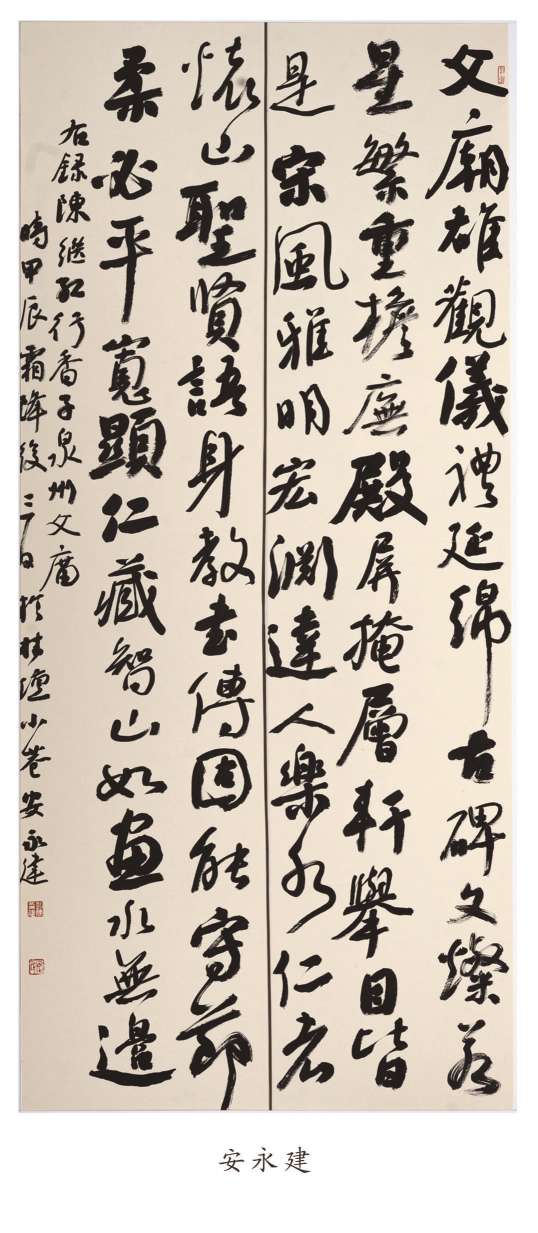 文廟雄觀儀禮延綿古碑文燦若
星繁重檐廡殿屏掩層軒舉目皆
是宋風雅明宏淵達人樂水仁者
懷山聖賢語身教書傳固能守節
柔必平寬顯仁藏智山如畫水無邊
右錄陳繼紅行香子泉州文廟
時甲辰霜降後二日於桂壇小巷安永建
安永建